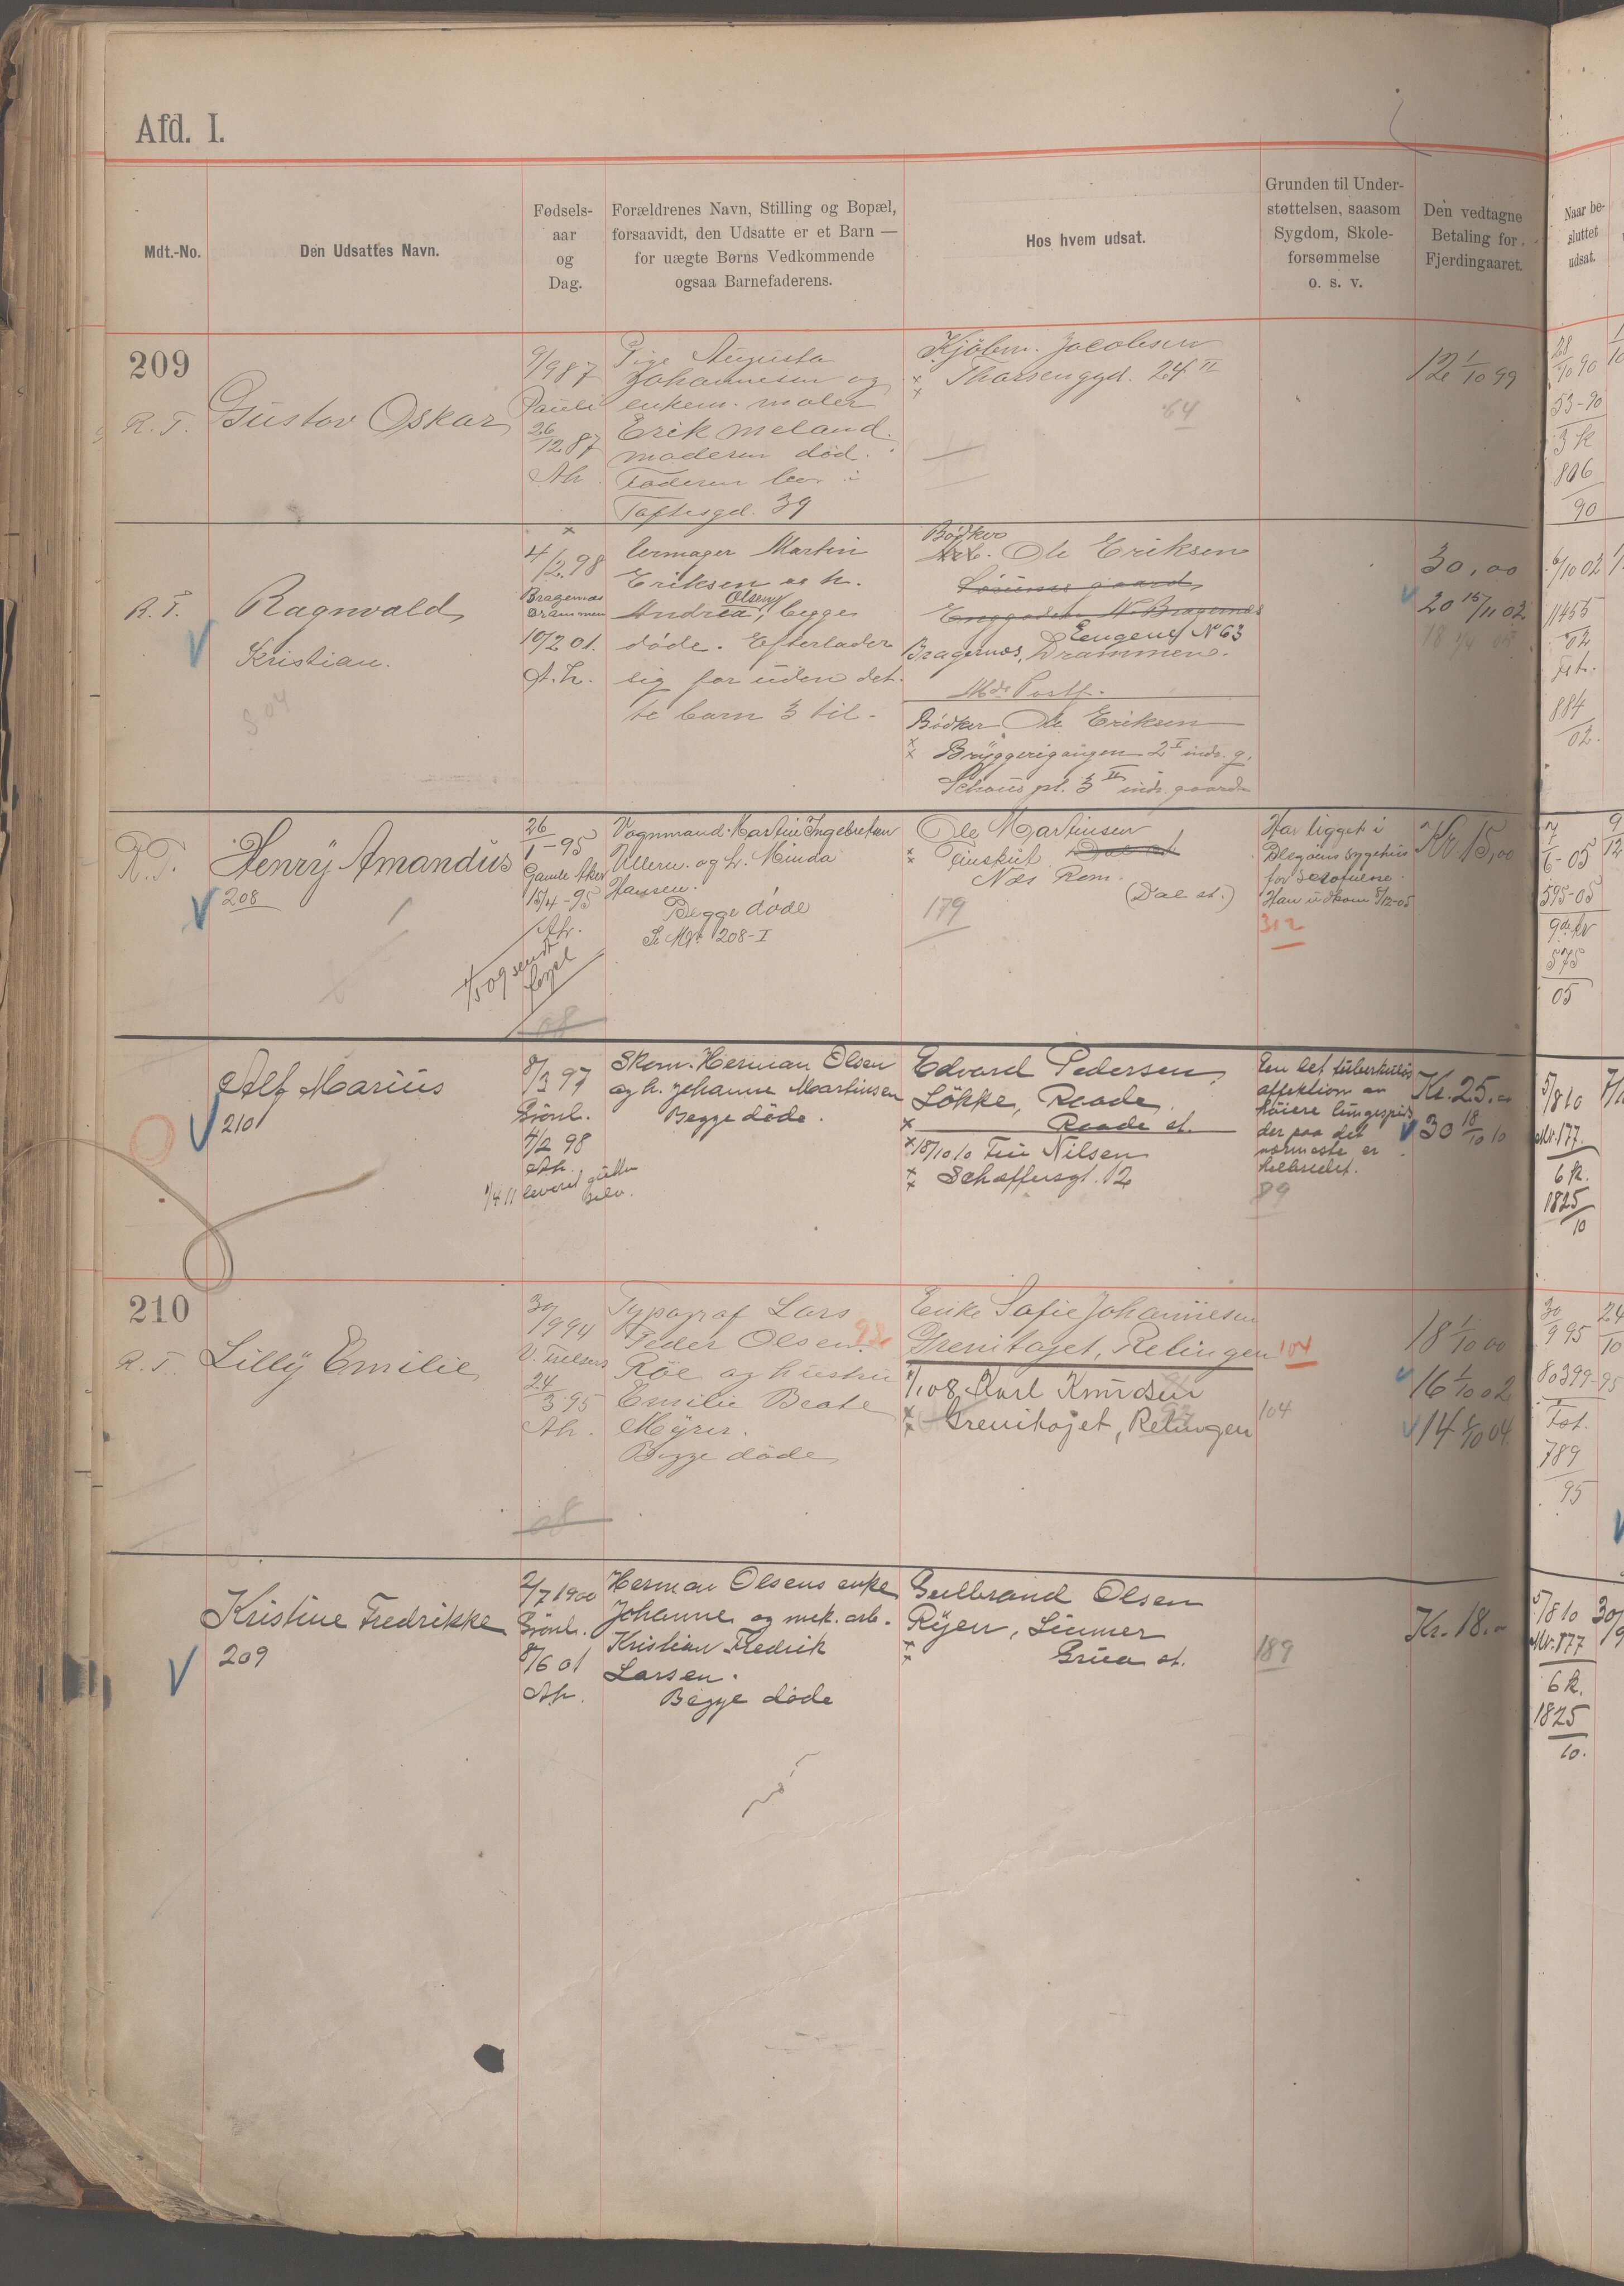 Afd. I.
Mdt.-No.
Den Udsattes Navn.
Fødsels-
aar
og
Dag.
Forældrenes Navn, Stilling og Bopæl,
forsaavidt, den Udsatte er et Barn —
for uægte Børns Vedkommende
ogsaa Barnefaderens.
Hos hvem udsat.
Grunden til Under-
støttelsen, saasom
Sygdom, Skole-
forsømmelse
o. s. v.
Den vedtagne
Betaling for
Fjerdingaaret.
Naar be-
sluttet
udsat.
209
R. T.
Gustav Oskar
9/9 87
Pauli
26/12 87
Ah
Pige Augusta
Johannesen og
enkem. maler
Erik Meland.
moderen død.
Faderen bor i
Toftesgd. 39
Kjøbm. Jacobsen
Thorsenggd. 24 II
64
12 1/10 99
28/10 90
53-90
3 k
806
90
R. T.
Ragnvald
Kristian.
4/2 98
Bragernæs
Drammen
10/2 01.
A. h.
Urmager Martin
Eriksen og h.
Olsen
Andrea, begge
døde. Efterlader
sig foruden det-
te barn 3 til.
Bødker
Arb. Ole Eriksen
Enggaden N Bragernæs
Eengene No 63
Bragernæs, Drammen.
Bødker Ole Eriksen
Bryggerigangen 2 I inds. g.
Schous pl. 3 II inds. gaarden
30,00
20 15/11 02
6/10 02
11455
02
Fst.
884
02.
R. T.
Henry Amandus
208
26/1-95
Gamle Aker
15/4-95
Ah.
1/5 09 sendt
Vognmand Martin Ingebretsen
Ullern. og h. Minda
Hansen.
Begge døde
Se Mdt 208-I
Ole Martinsen
Finskut Dal st.
Næs Rom.
(Dal st.)
179
Har ligget i
Blegdens sygehus
for scrofulose.
Han udkom 8/12-05
312
Kr 15,00
7/6-05
595-05
9de kv
575
05
Alf Marius
210
8/3 97
Grønl.
4/2 98
Ah.
1/4 11 leveret
Skom. Herman Olsen
og h. Johanne Martinsen
Begge døde.
Edvard Pedersen,
Løkke, Raade,
Raade st.
18/10 10 Fru Nilsen
Schaffersgt. 12
En let tuberkuløs
affektion av
høiere lungespids
der paa det
nærmeste er
helbredet.
89
Kr. 25.-
30 18/10 10
5/8 10
Mr. 177.
6 k.
1825
10
210
R. T.
Lilly Emilie
30/9 94
V. Frelsers
24/3 95
Ah.
Typograf Lars
Peder Olsen
Røe og hustru
Emilie Beate
Myrer.
Begge døde
Enke Sofie Johannesen
Grenitajet, Relingen
104
1/1 08 Karl Knudsen
Grenitajet, Relingen
104
18 1/10 00
16 1/10 02
14 1/10 04.
30/9 95
80399-95
Fst.
789
95
Kristine Fredrikke
209
2/7 1900
Grønl.
8/6 01
Ah.
Herman Olsens enke
Johanne og mek. arb.
Kristian Fredrik
Larsen.
Begge døde
Gulbrand Olsen
Ryen, Lunner
Grua st.
189
Kr. 18.-
5/8 10
Mr. 177
6 k.
1825
10.